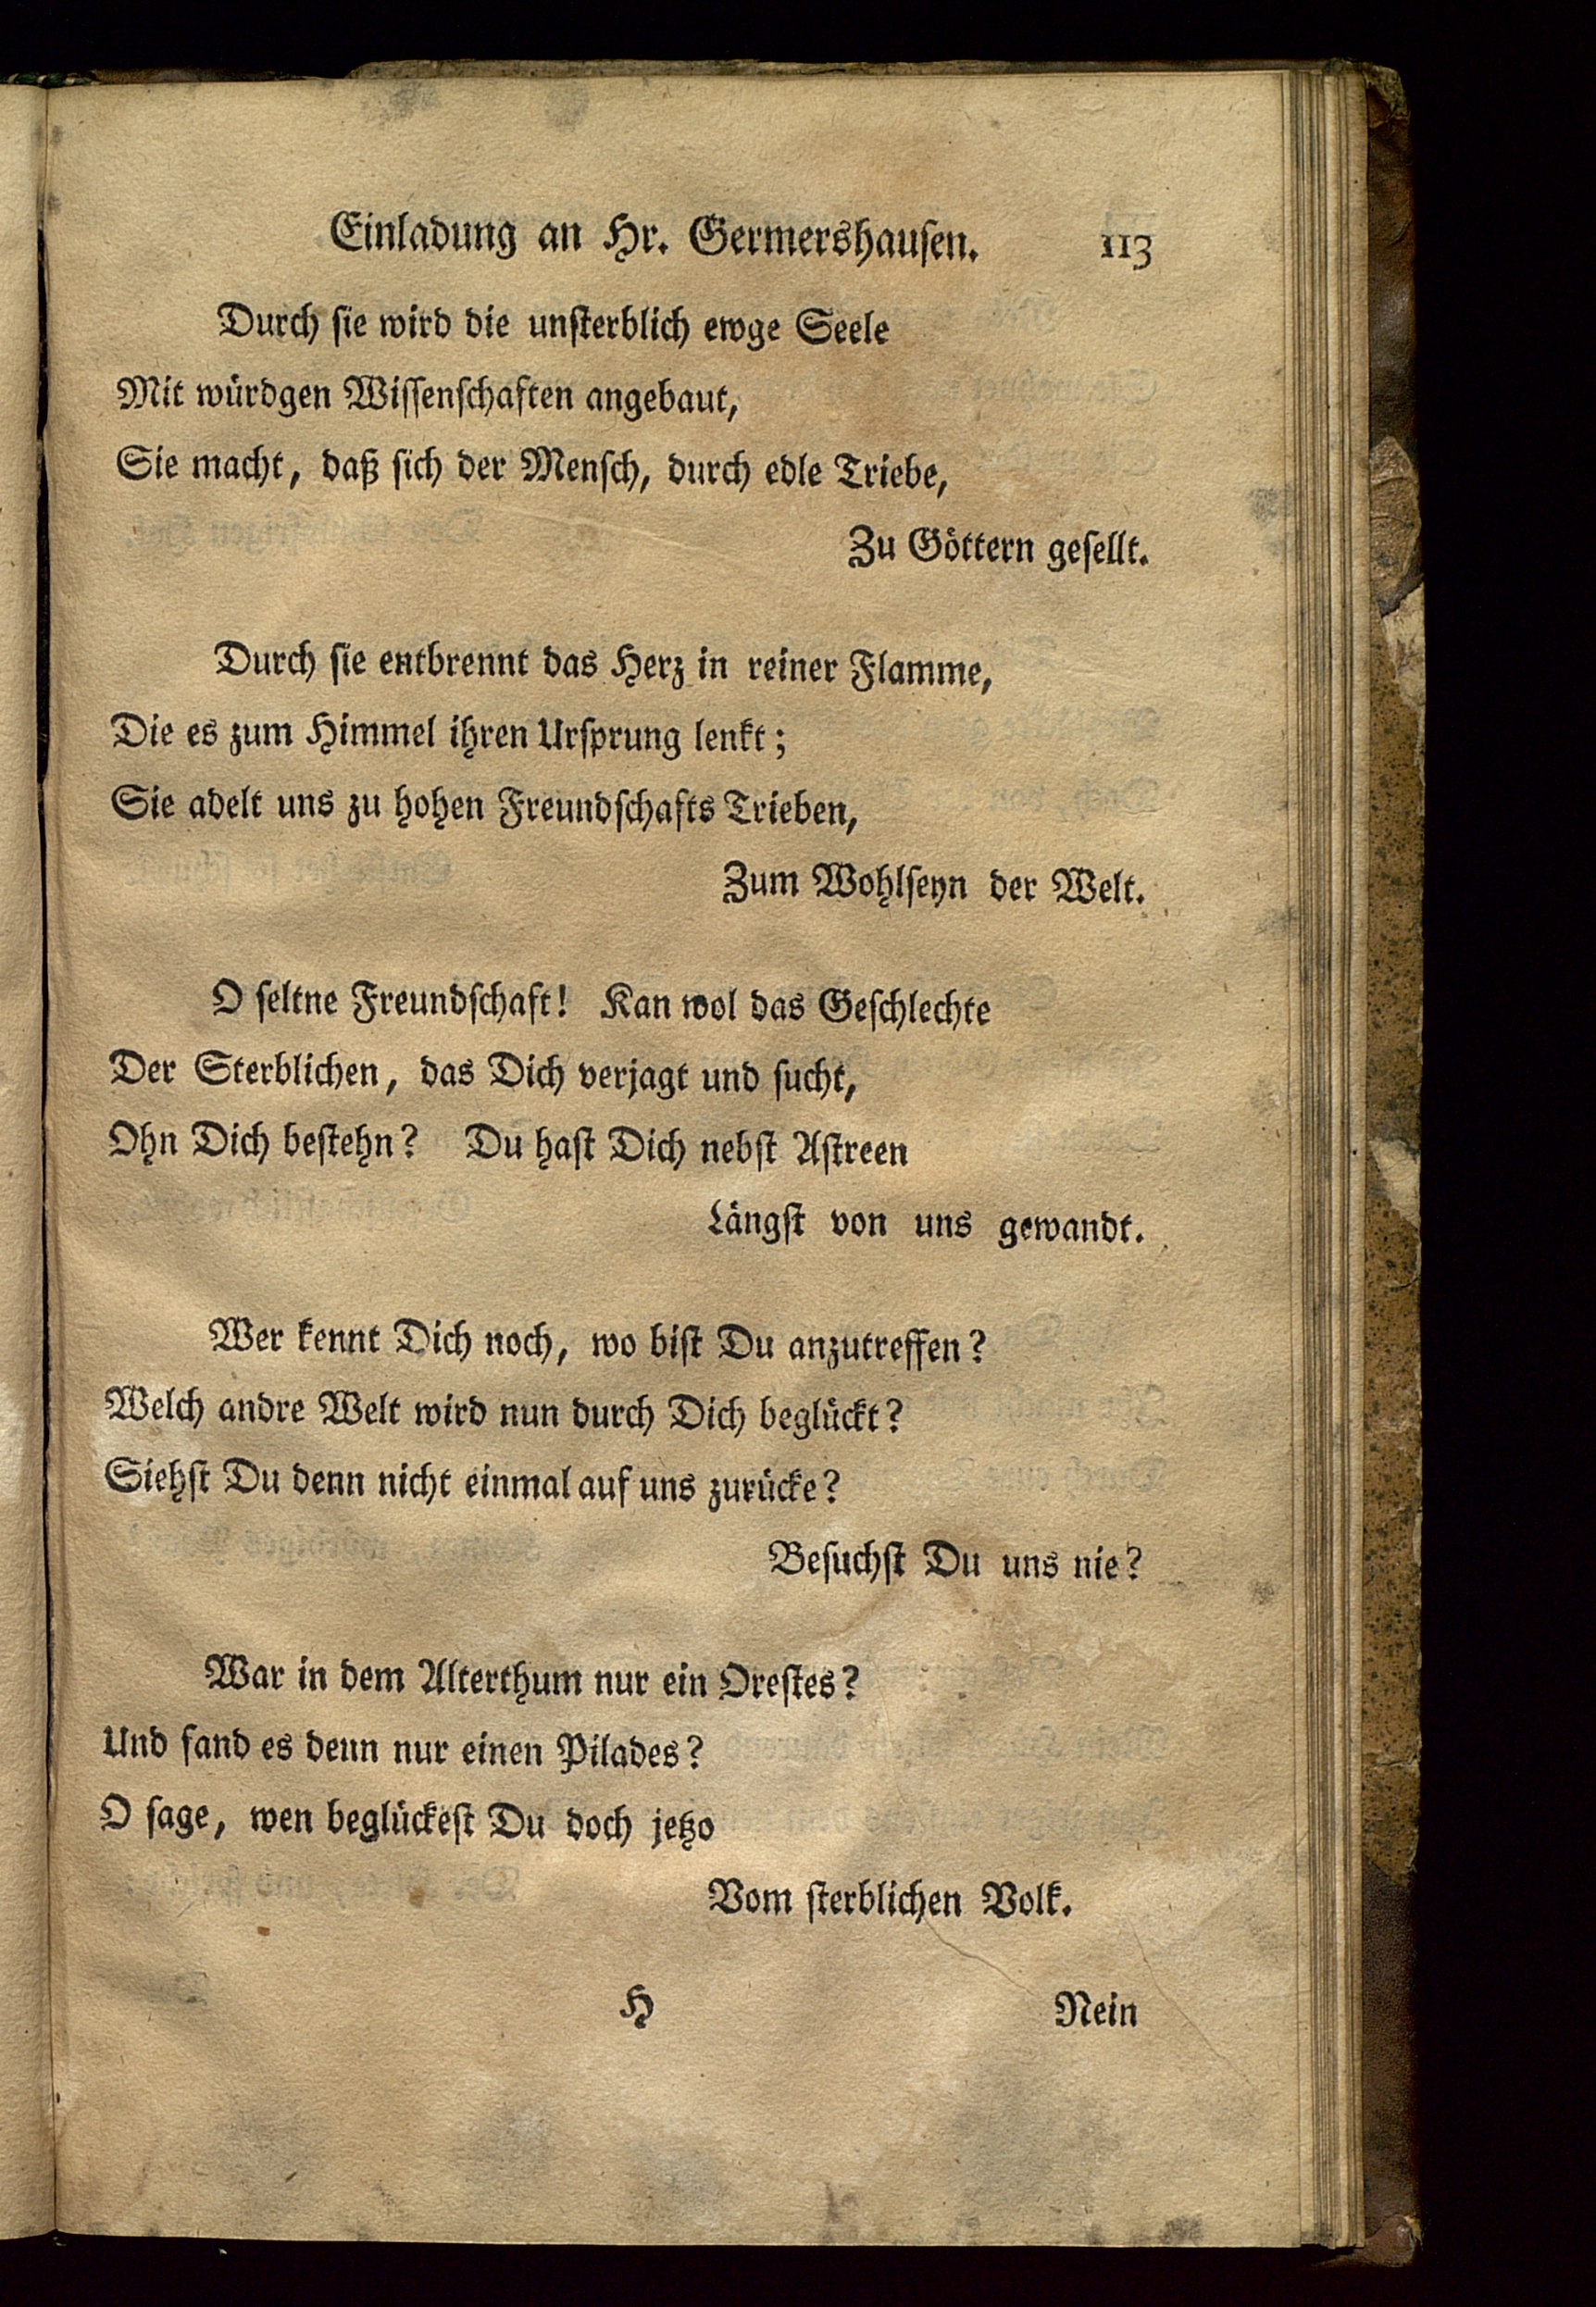 Einladung an Hr. Germershausen. 113
Durch sie wird die unsterblich ewge Seele
Mit würdgen Wissenschaften angebaut,
Sie macht, daß sich der Mensch, durch edle Triebe,
Zu Göttern gesellt.
Durch sie entbrennt das Herz in reiner Flamme,
Die es zum Himmel ihren Ursprung lenkt;
Sie adelt uns zu hohen Freundschafts Trieben,
Zum Wohlseyn der Welt.
O seltne Freundschaft! Kan wol das Geschlechte
Der Sterblichen, das Dich verjagt und sucht,
Ohn Dich bestehn? Du hast Dich nebst Astreen
Längst von uns gewandt.
Wer kennt Dich noch, wo bist Du anzutreffen?
Welch andre Welt wird nun durch Dich beglückt?
Siehst Du denn nicht einmal auf uns zurücke?
Besuchst Du uns nie?
War in dem Alterthum nur ein Orestes?
Und fand es denn nur einen Pilades?
O sage, wen beglückest Du doch jetzo
Vom sterblichen Volk.
H Nein